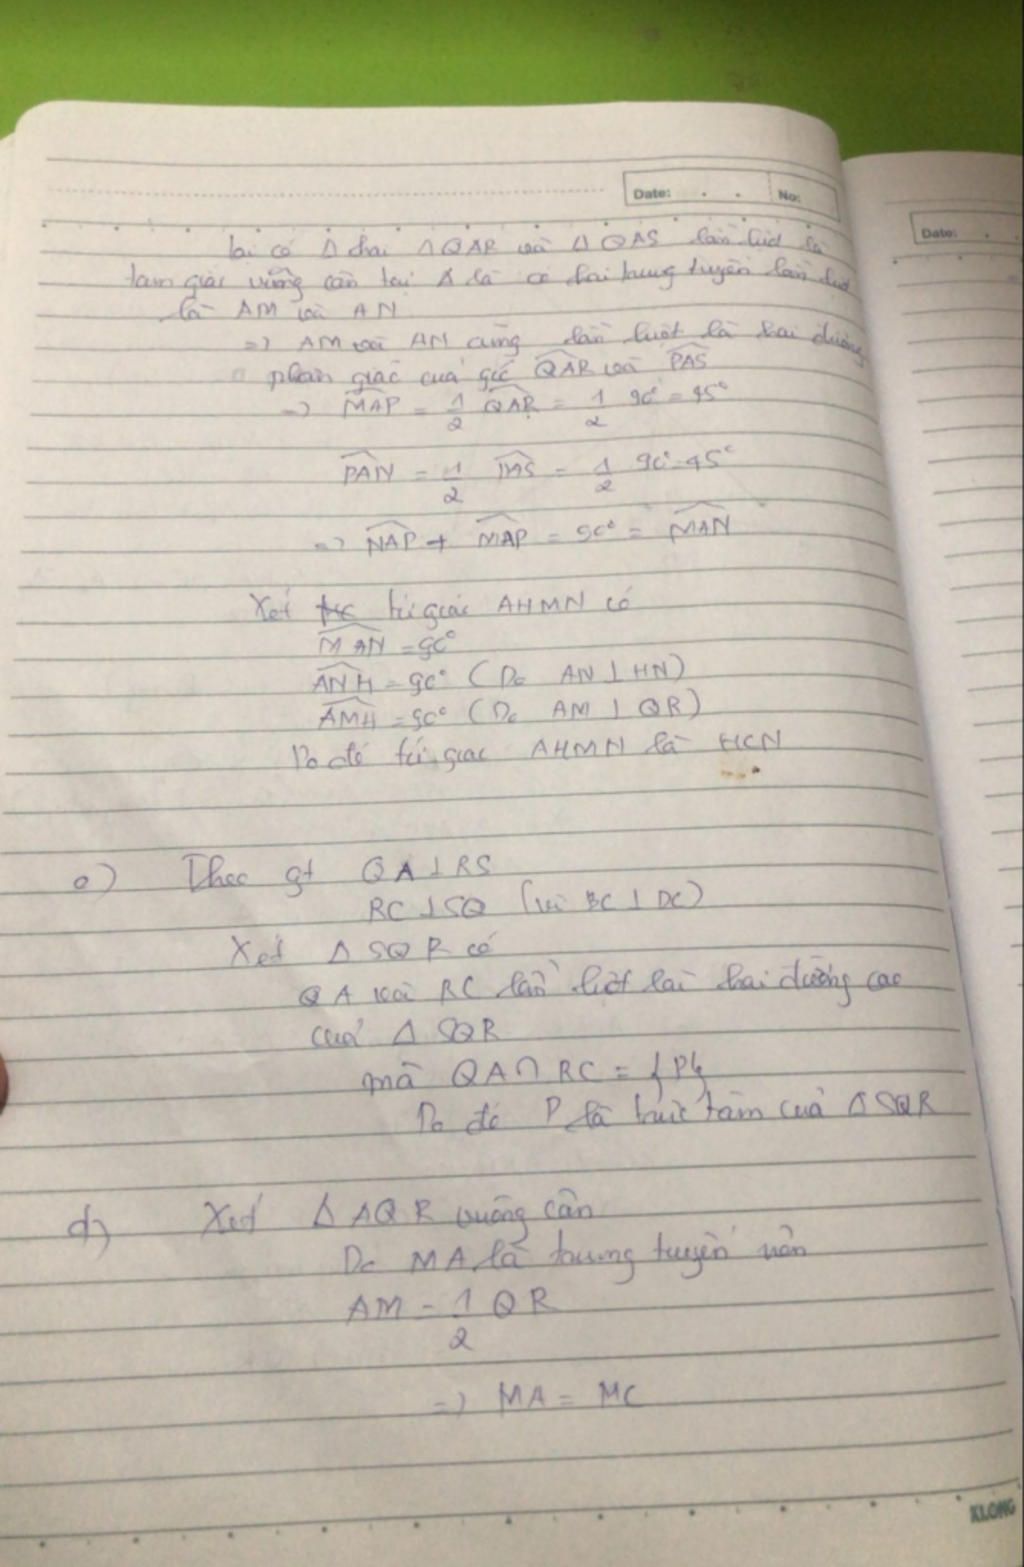 Date: . . No:
Date: . .
lại có Δ hai ΔQAR và ΔQAS lần lượt là
tam giác vuông cân tại A là có hai trung tuyến lần lượt
là AM và AN
=) AM và AN cũng lần lượt là hai đường
phân giác của góc QAR và PAS
=) MAP = 1/2 QAR = 1/2 90° = 45°
PAN = 1/2 PAS = 1/2 90° = 45°
=) NAP + MAP = 90° = MAN
Xét tứ giác AHMN có
MAN = 90°
ANH = 90° (Do AN ⊥ HN)
AMH = 90° (Do AM ⊥ QR)
Do đó tứ giác AHMN là HCN
c) Theo gt QA ⊥ RS
RC ⊥ SQ (vì BC ⊥ DC)
Xét Δ SQR có
QA và RC lần lượt là hai đường cao
của Δ SQR
mà QA ∩ RC = {P}
Do đó P là trực tâm của Δ SQR
d) Xét Δ AQR vuông cân
Do MA là trung tuyến nên
AM = 1/2 QR
=) MA = MC
KLONG